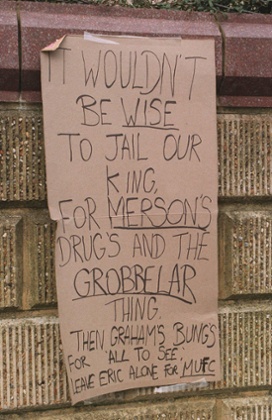 IT WOULDN'T
BE WISE
TO JAIL OUR
KING,
FOR MERSON'S
DRUG'S AND THE
GROBBELAR
THING.
THEN GRAHAM'S BUNG'S
FOR "ALL TO SEE",
LEAVE ERIC ALONE FOR MUFC